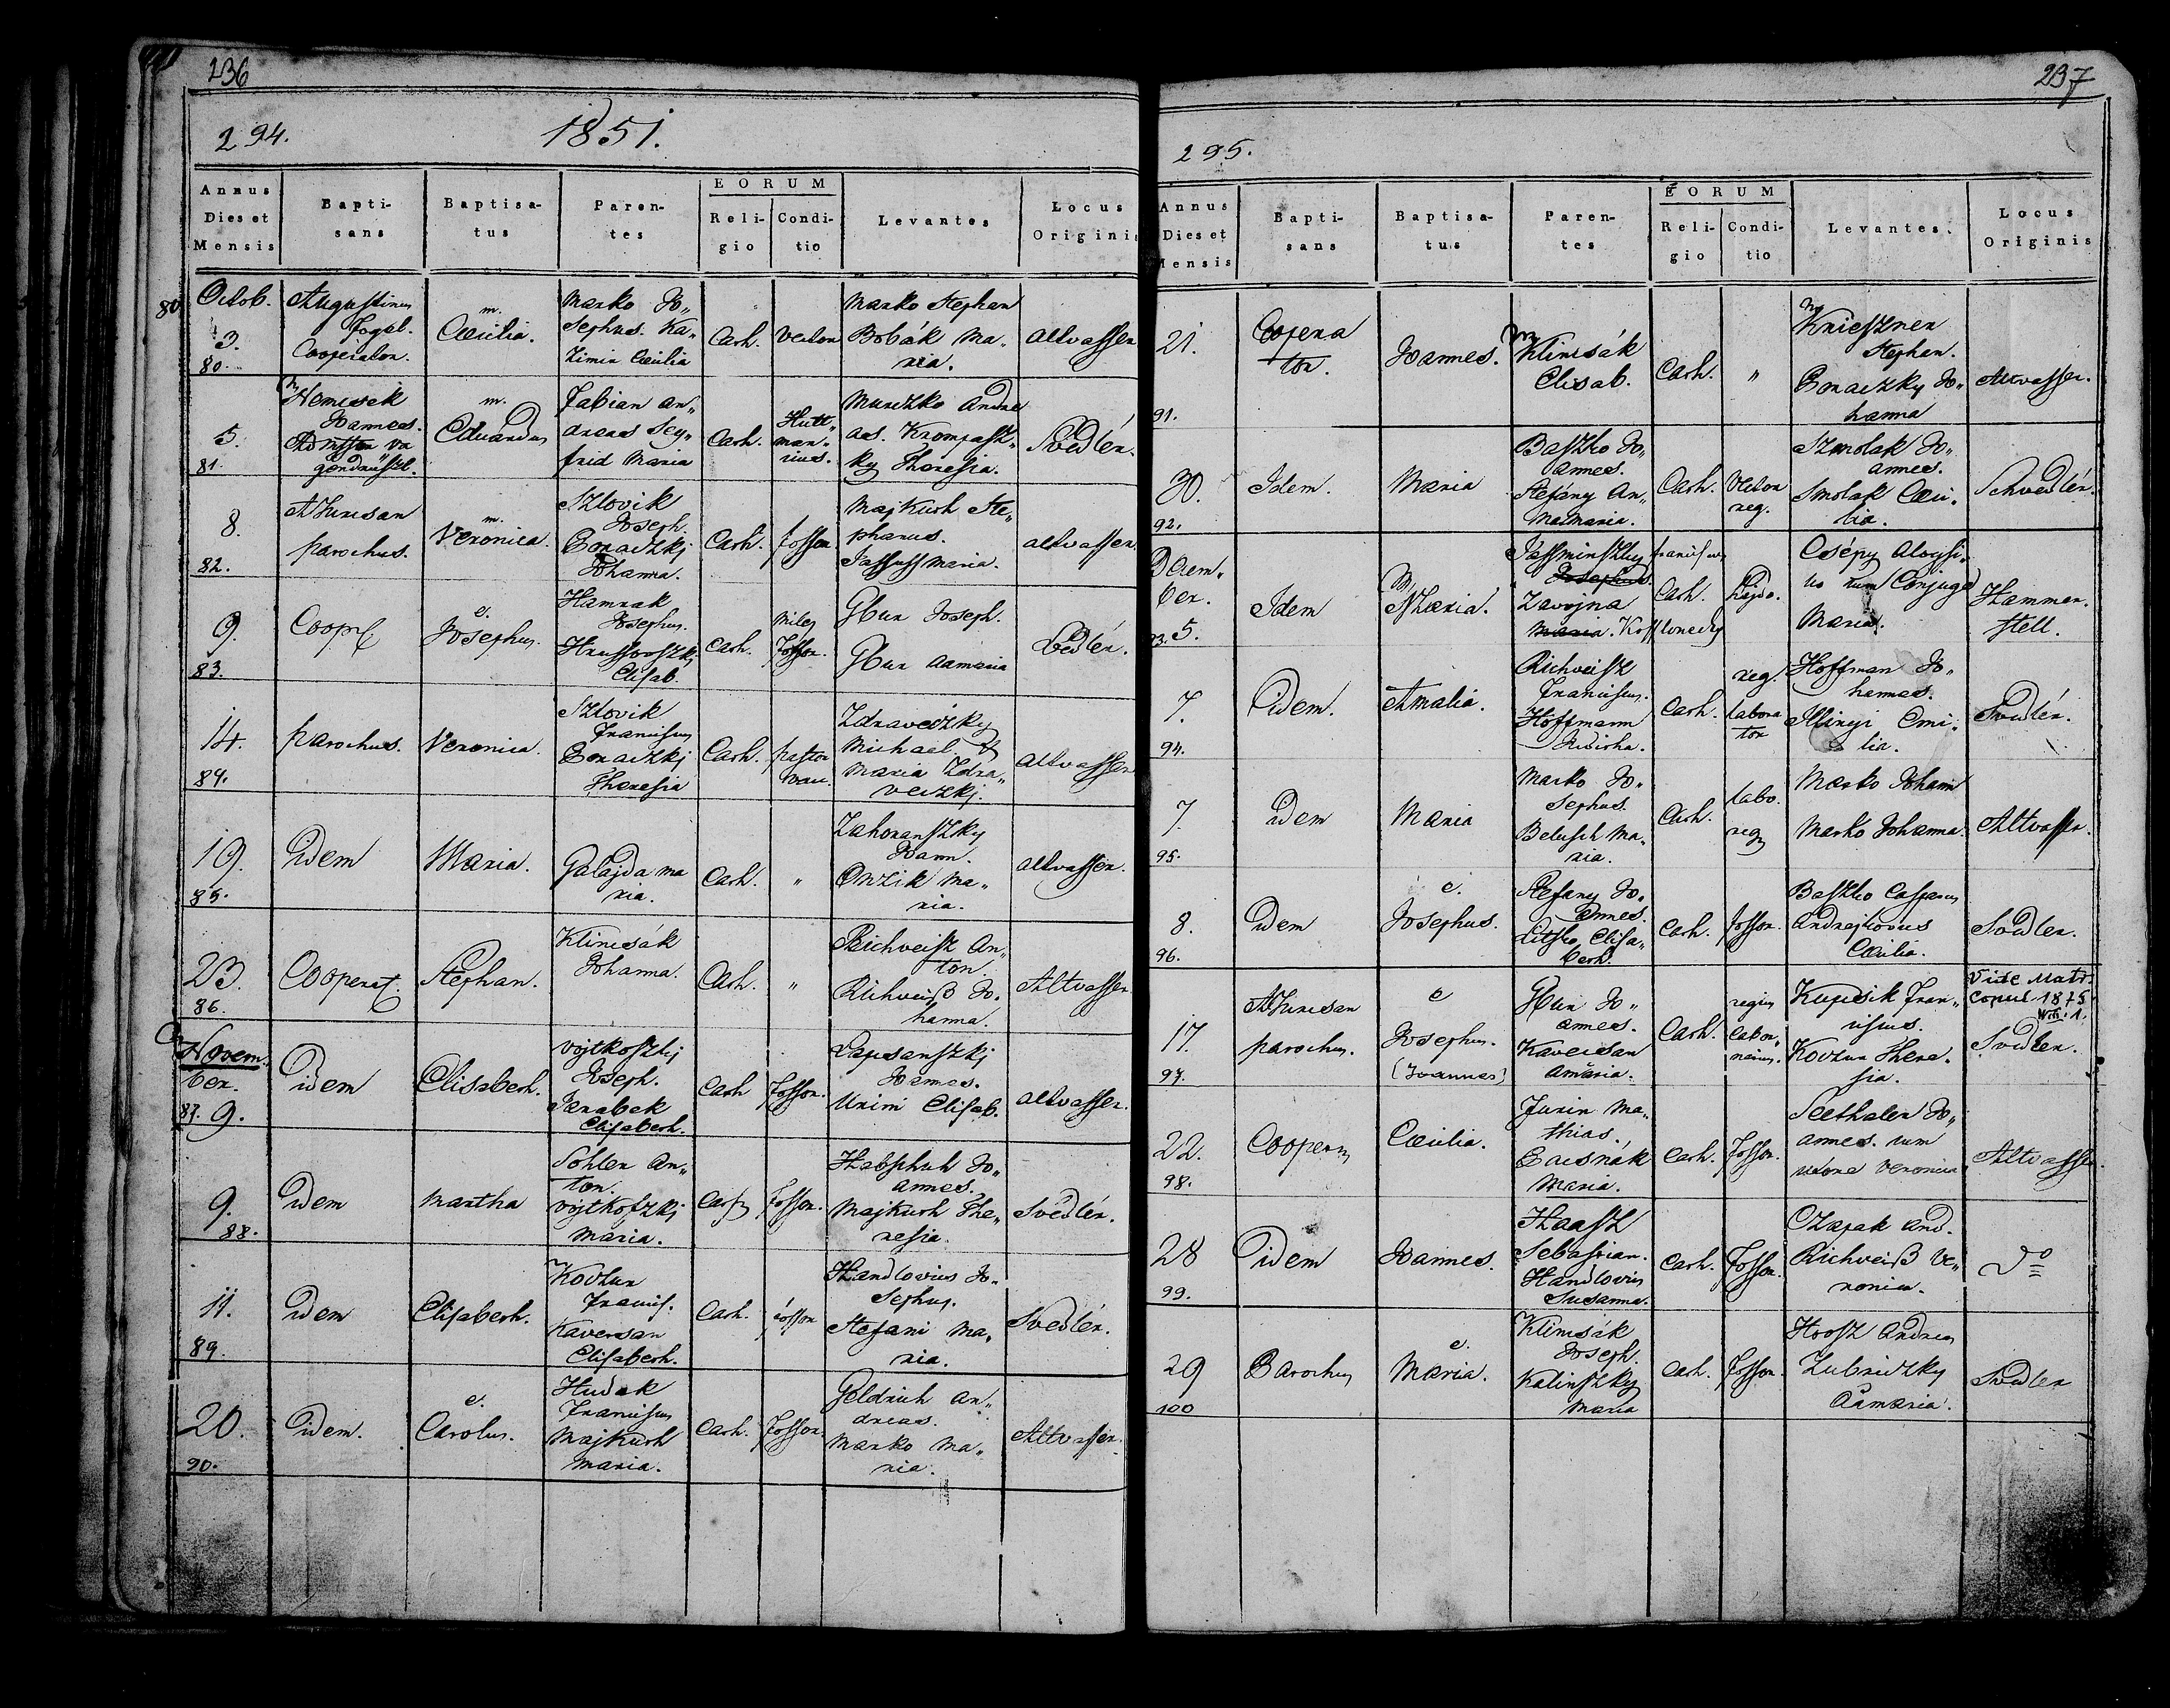 236
294.
1851.
Annus Dies et Mensis Bapti-sans Baptisa-tus Paren-tes EORUM Reli-gio Condi-tio Levantes Locus Originis
80 Octob.
3.
80.
Augustinus
Cooperator.
m.
Cæcilia.
Marko Jo„
sephus. Ka„
zimir Cæcilia
Cath.
Vector
Marko Stephan
Bobák Ma„
ria.
Altvasser
5.
81.
Joannes.
m.
Eduardus
Fabian An„
dreas Sey„
frid Maria
Cath.
Hutt„
man„
nius.
Murezko Andre
as. Krompasz„
ky Theresia.
Svedlér.
8.
82.
parochus.
m.
Veronica.
Sztovik
Joseph.
Johanna.
Cath.
fossor
Majkuth Ste„
phanus.
Maria.
altvasser.
9.
83.
e.
Josephus.
Hamrak
Josephus.
Elisab.
Cath.
Miles
fossor.
Gbur Joseph.
Gbur Aamaria
Svedlér.
14.
84.
parochus.
Veronica.
Sztovik
Franciscus
Theresia
Cath.
pastor
Zdraveczky
Michael &
Maria Zdra„
veczkj.
Altvasser
19.
85.
Idem
Maria.
Galajda Ma
ria.
Cath.
„
Zahoranszky
Joann.
Onzik Ma„
ria.
altvasser.
23.
86.
Cooperat.
Stephan.
Klimcsák
Johanna.
Cath.
„
Richveisz An„
ton.
Richveiß Jo„
hanna.
Altvasser
Novem.
ber.
87. 9.
Idem
Elisabeth.
Vojtkoszkj
Joseph.
Jarabek
Elisabeth.
Cath
fossor.
Lapsanszkj
Joannes.
Elisab.
altvasser.
9.
88.
Idem
Martha
Söhler An„
ton.
Vojtkoszkj
Maria.
Cath
fossor.
Habschuh Jo„
annes.
Majkuth The„
resia.
Svedlér.
11.
89.
Idem
Elisabeth.
Kovtun
Francis.
Kavecsan
Elisabeth.
Cath.
fossor
Handlovics Jo„
sephus.
Stefani Ma„
ria.
Svedlér.
20.
90.
Idem.
e.
Carolus.
Hudak
Franciscus
Majkuth
Maria.
Cath.
fossor.
Geldrich An„
dreas.
Marko Ma„
ria.
Altvasser.
237
295.
Annus Dies et Mensis Bapti-sans Baptisa-tus Paren-tes EORUM Reli-gio Condi-tio Levantes. Locus Originis
21.
91.
Coopera
tor.
Joannes.
Klimcsák
Elisab.
Cath.
„
Knieszner
Stephan.
Jo„
hanna
Altvasser.
30.
92.
Idem.
Maria
Baszko Jo„
annes.
Stefány An„
namaria.
Cath.
Vector
reg.
Szmolak Jo„
annes.
Smolak Cæci„
lia.
Schvedlér.
Decem„
ber.
93. 5.
Idem
Maria.
Jassminszky Franciscus
Josephus.
Zavojna
Maria.
Cath.
Hajdo.
Csépy Aloysi„
us cum Conjuge
Maria.
Hammer.
stell.
7.
94.
Idem.
Amalia.
Richveisz
Franciscus.
Hoffmann
Juditha.
Cath.
reg.
labora
tor
Hoffman Jo„
hannes.
Illinyi Emi„
lia.
Svedlér.
7.
95.
Idem
Maria
Marko Jo„
sephus.
Belusch Ma„
ria.
Cath.
labo.
reg
Marko Johann
Marko Johanna.
Altvasser.
8.
96.
Idem
e.
Josephus.
Stefany Jo„
annes.
Litsko Elisa„
beth.
Cath.
fossor.
Baszko Casparus
Andrajkovics
Cæcilia.
Svedler.
17.
97.
parochus.
e
Josephus.
(Joannes)
Gbur Jo„
annes.
Kavecsan
Amaria.
Cath.
regius
labor„
Kupcsik Fran„
ciscus.
Kovtun There„
sia.
Vide Matr.
Copul 1875.
Nro. 1.
Svedler.
22.
98.
Cooper
Cæcilia.
Jurin Ma„
thias.
Maria.
Cath.
fossor.
Seethaler Jo„
annes. cum
uxore Veronica
Altvasser.
28
99.
Idem
Joannes.
Haasz
Sebastian.
Handlovics
Susanna.
Cath.
fossor.
Czapak And.
Richveiß Ve„
ronica.
do
29
100
Parochus
e.
Maria.
Klimcsák
Joseph.
Kalinszky
Maria
Cath.
fossor.
Hoosz Andreas
Zubriczky
Aamaria.
Svedler